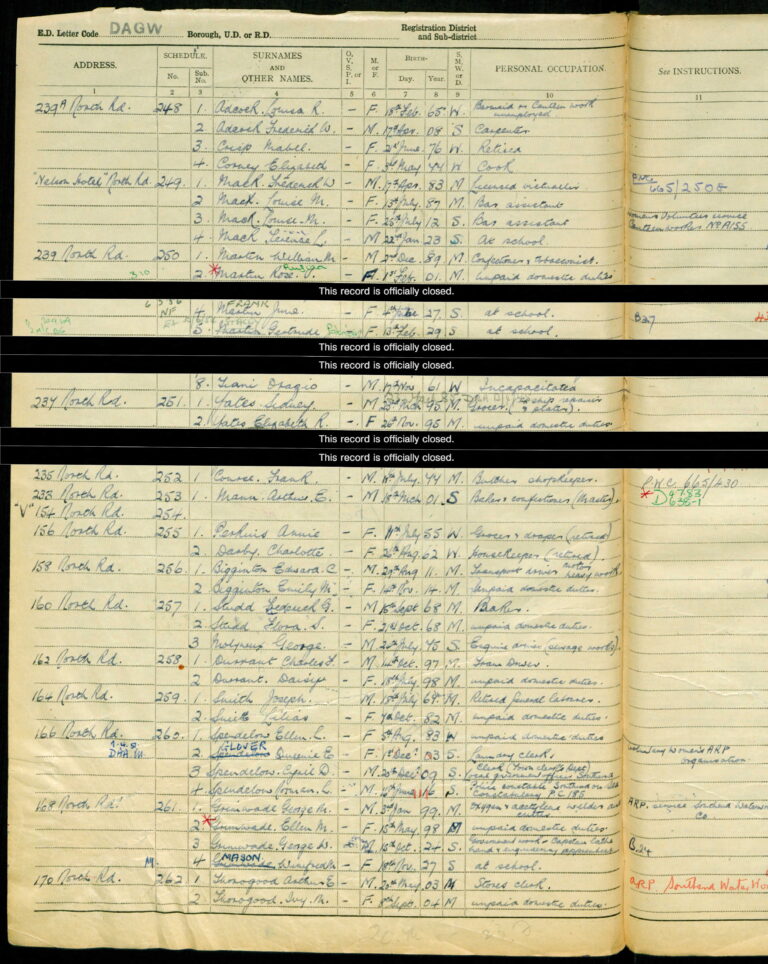 E.D. Letter Code DAGW Borough, U.D. or R.D. Registration District and Sub-district
ADDRESS. SCHEDULE. No. Sub. No. SURNAMES AND OTHER NAMES. O, V, S, P, or I M. or F. BIRTH- Day. Year. S. M. W. or D. PERSONAL OCCUPATION. See INSTRUCTIONS.
1 2 3 4 5 6 7 8 9 10 11
239A North Rd. 248 1. Adcock. Louisa R. - F. 18th Feb. 65 W. Barmaid or Canteen work unemployed
2 Adcock Frederick W. - M. 17th Apr. 08 S Carpenter
3. Crisp Mabel. - F. June. 76 W. Retired
4. Corney Elizabeth - F. 3rd May 44 W Cook
"Nelson Hotel" North Rd. 249. 1. Mack. Frederick W - M. 7th Apr. 83 M Licensed victualler 665/250
2. Mack. Louise M. - F. 13th July. 87 M. Bar assistant
3. Mack. Louise. M. - F. 25th July 12 S. Bar assistant Women's Volunteer service Canteen worker
4. Mack L. M 22nd Jan 23 S. At school.
239 North Rd. 250 1. Martin William M - M 2nd Dec. 89 M. Confectioner & tobacconist.
2. Martin Rose. V. - F. 1st Feb. 01. M. unpaid domestic duties
This record is officially closed.
4. Martin June. - F - 27. S. at school. B27
FRANK
5. Martin Gertrude - F. 13th Feb. 29 S. at school.
This record is officially closed.
This record is officially closed.
8. Oragio - M. 17th Nov. 61 W Incapacitated
237 North Rd. 251. 1. Yates. Sidney. - M. 95. M. Grocer.
2. Yates Elizabeth R. - F 26th Nov. 95 M. unpaid domestic duties
This record is officially closed.
This record is officially closed.
235 North Rd. 252 1. Course. Frank. - M. July. 44 M. Butcher shopkeeper. 665/430
233 North Rd. 253 1. Mann. Arthur. E. - M 18th Mch 01. S Baker & confectioner (Master).
"V" 154 North Rd. 254.
156 North Rd. 255 1. Perkins Annie - F. 11th July 55 W. Grocer & draper (retired)
2. Darby. Charlotte. - F. 26th Aug. 62 W. Housekeeper (retired).
158 North Rd. 256. 1. Bigginton Edward. C. - M. 29th Aug 11. M. Transport driver motor heavy worth
2. Bigginton Emily M. - F. 14th Nov. 14. M. Unpaid domestic duties.
160 North Rd. 257 1. Studd Frederick G. - M 15th Sept 68 M. Baker.
2. Studd Flora. S. - F. 2nd Oct. 68 M. unpaid domestic duties.
3 Molyneux George. - M. July. 75 S Engine driver (sewage works).
162 North Rd. 258 1. Durrant Charles F. - M. 14th Oct. 97 M. Tram Driver.
2. Durrant. Daisy. - F. 18th July 98 M. unpaid domestic duties.
164 North Rd. 259. 1. Smith Joseph. - M. 18th July 67 M. Retired General labourer.
2. Smith Lilias - F. 7th Oct. 82 M. unpaid domestic duties.
166 North Rd. 260. 1. Spendelow Ellen. L. - F 5th Aug. 83 W unpaid domestic duties
GLOVER
2 Spendelow Queenie E - F. 1st Dec. 03 S. Summary clerk. Voluntary Women's ARP organisation.
3 Spendelow. Cyril D. - M. 20th Dec. 09 S. Clerk (Town clerk's Dept) local government officer Southend
4. Spendelow Norman. L. - M. 19th June 16 S. Police constable Southend on Sea Constabulary P.C. 185
168 North Rd. 261. 1. Grimwade. George M. - M. 3rd Jan 99. M. Oxygen & acetylene welder and cutter A.R.P. service Southend Waterworks Co.
2. Grimwade. Ellen M. - F. 15th May. 98 M unpaid domestic duties
3. Grimwade. George W. M 15th Oct. 24 S. Government work Capstan Lathe hand & engineering apprentice B.24
MASON
M. 4 Grimwade Winifred M - F. 18th Nov. 27 S at school.
170 North Rd. 262 1. Thorogood Arthur. E - M. 20th May. 03 M Stores clerk. A.R.P Southend Water Works
2. Thorogood. Ivy. M. - F. 18th Sept. 04 M unpaid domestic duties.